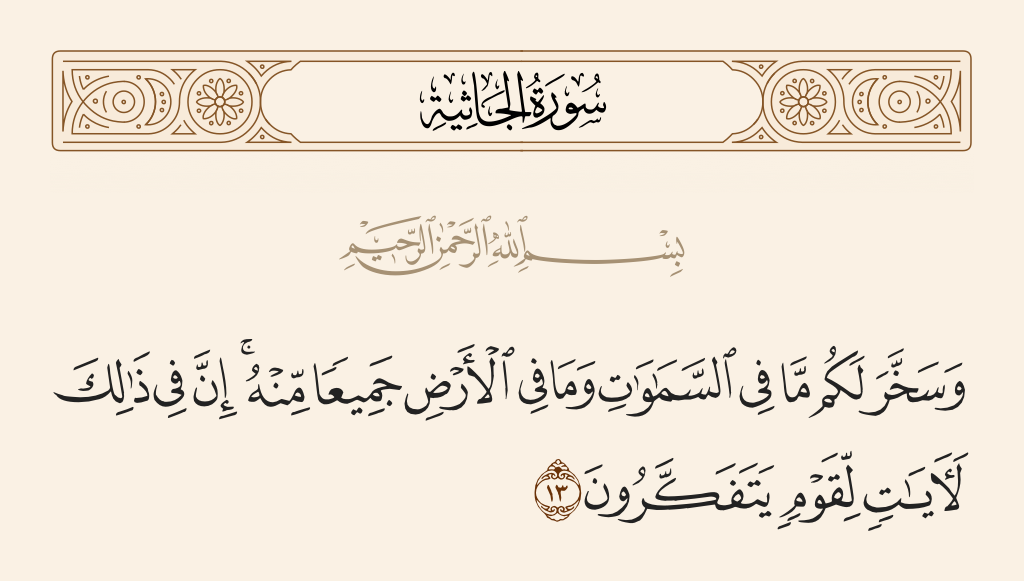 سُورَةُ الجَاثِيَةِ
بِسْمِ ٱللَّهِ ٱلرَّحْمَٰنِ ٱلرَّحِيمِ
وَسَخَّرَ لَكُم مَّا فِى ٱلسَّمَٰوَٰتِ وَمَا فِى ٱلْأَرْضِ جَمِيعًا مِّنْهُ ۚ إِنَّ فِى ذَٰلِكَ
لَءَايَٰتٍ لِّقَوْمٍ يَتَفَكَّرُونَ ١٣